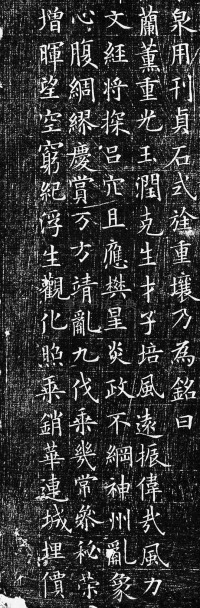 泉用刊貞石式旌重壤乃為銘曰
蘭薰重光玉潤克生才子培風遠振偉哉風力
文經將探吕穴且應樊星炎政不綱神州亂象
心腹綢繆慶賞万方靖亂九伐乘幾常參秘策
增暉望空窮紀浮生觀化照乘銷華連城埋價